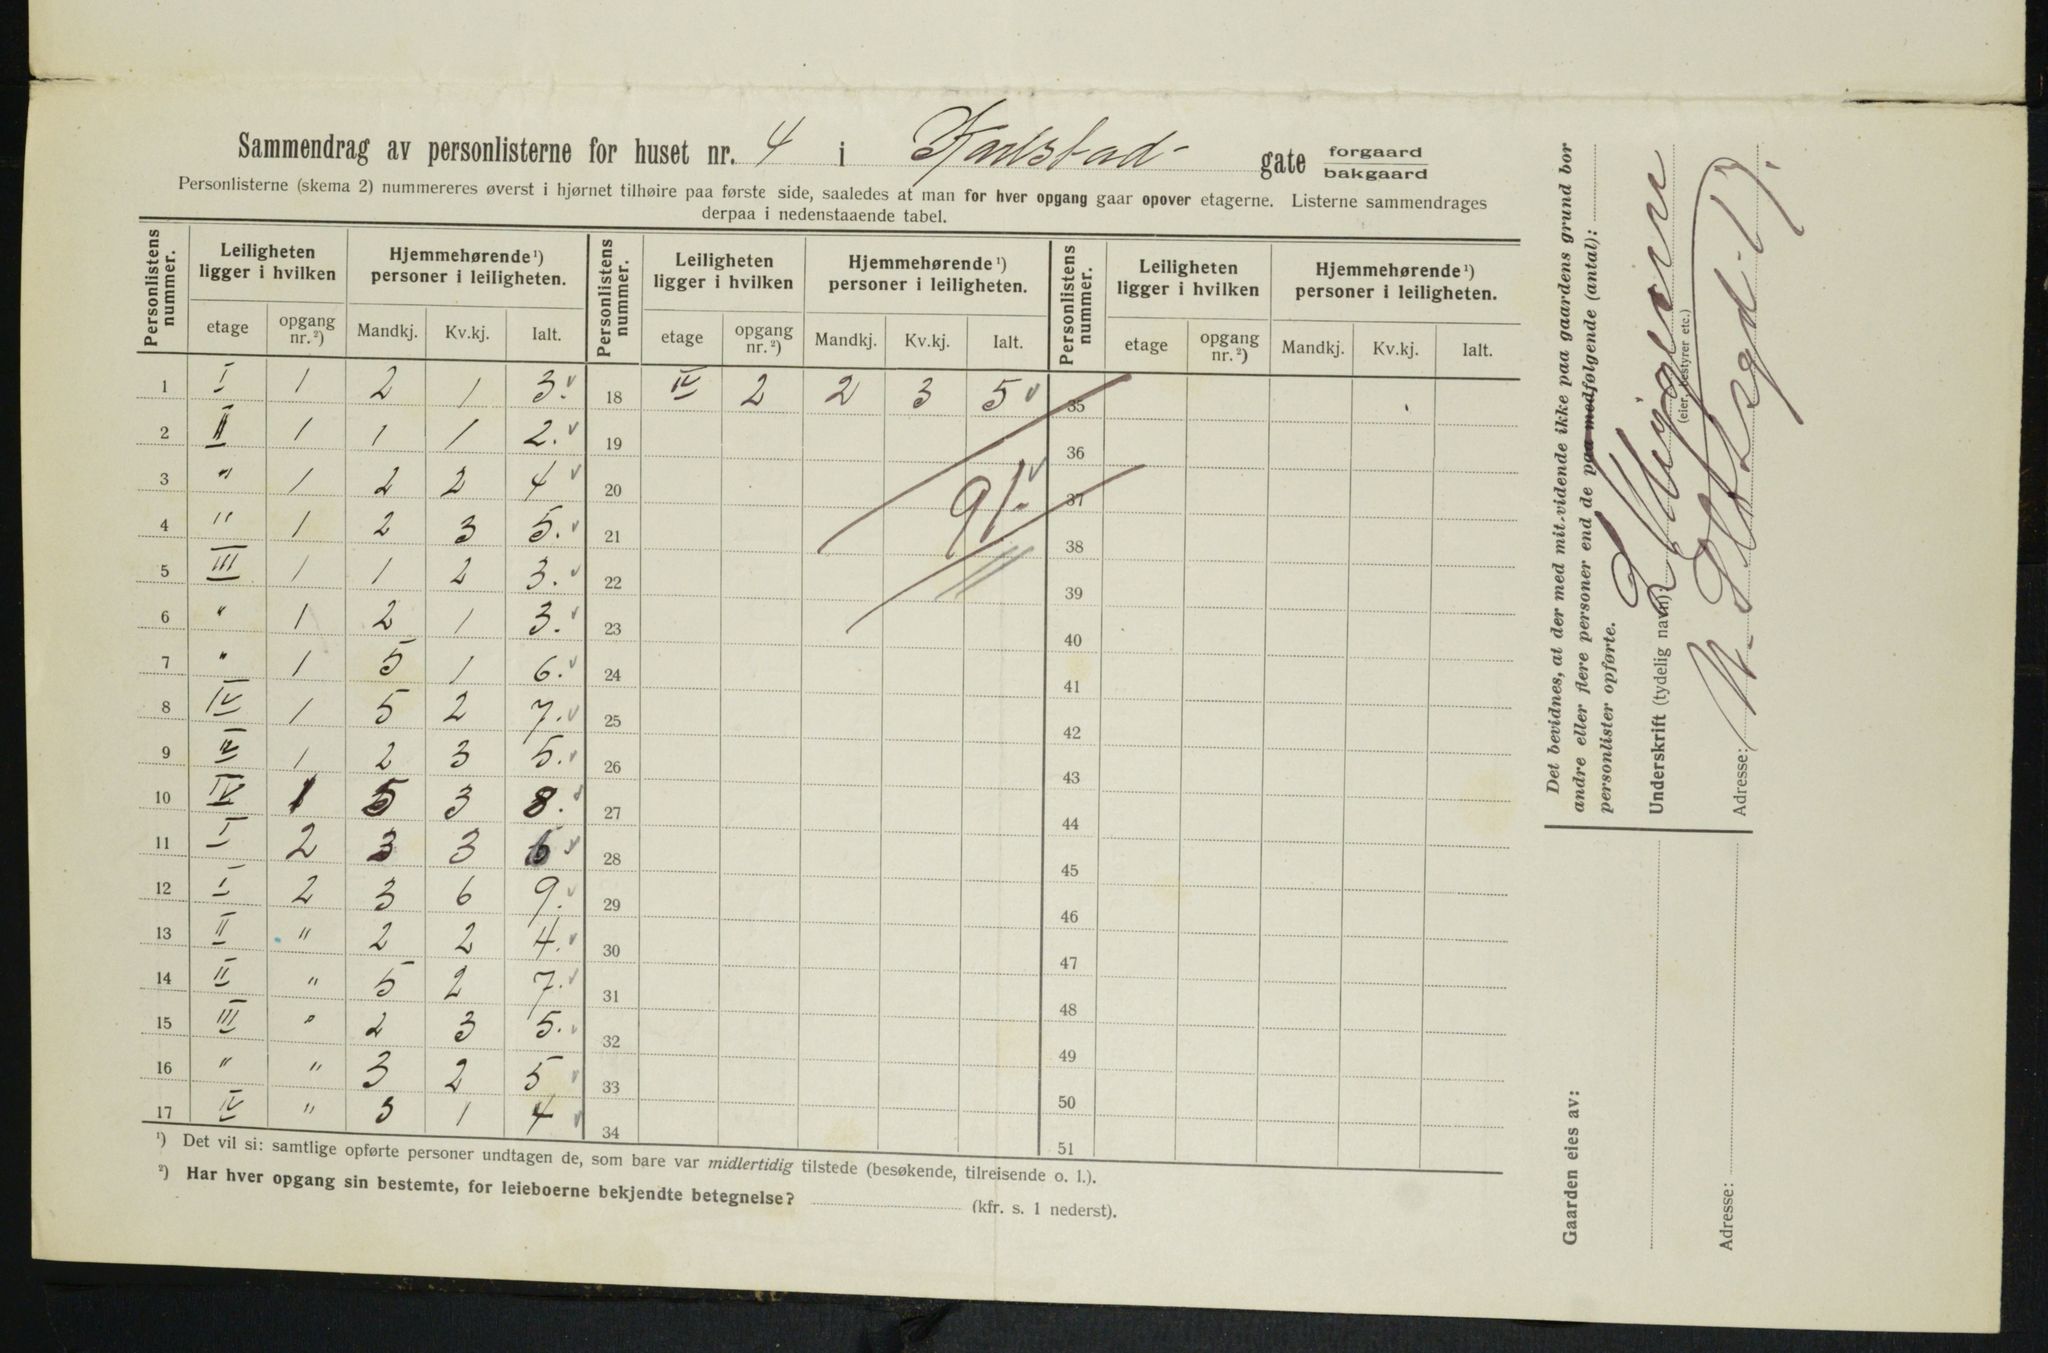 Sammendrag av personlisterne for huset nr. 4 i Karlstad- gate forgaard bakgaard
Personlisterne (skema 2) nummereres øverst i hjørnet tilhøire paa første side, saaledes at man for hver opgang gaar opover etagerne. Listerne sammendrages
derpaa i nedenstaaende tabel.
Personlistens nummer. Leiligheten ligger i hvilken Hjemmehørende¹) personer i leiligheten. Personlistens nummer. Leiligheten ligger i hvilken Hjemmehørende¹) personer i leiligheten. Personlistens nummer. Leiligheten ligger i hvilken Hjemmehørende¹) personer i leiligheten.
etage opgang nr.²) Mandkj. Kv.kj. Ialt. etage opgang nr.²) Mandkj. Kv.kj. Ialt. etage opgang nr.²) Mandkj. Kv.kj. Ialt.
1 I 1 2 1 3. 18 IV 2 2 3 5 35
2 II 1 1 1 2. 19 36
3 " 1 2 2 4 20 91. 37
4 " 1 2 3 5. 21 38
5 III 1 1 2 3. 22 39
6 " 1 2 1 3. 23 40
7 " 1 5 1 6. 24 41
8 IV 1 5 2 7. 25 42
9 IV 1 2 3 5. 26 43
10 IV 1 5 3 8. 27 44
11 I 2 3 3 6 28 45
12 I 2 3 6 9. 29 46
13 II " 2 2 4. 30 47
14 II " 5 2 7. 31 48
15 III " 2 3 5. 32 49
16 " " 3 2 5 33 50
17 IV " 3 1 4 34 51
¹) Det vil si: samtlige opførte personer undtagen de, som bare var midlertidig tilstede (besøkende, tilreisende o. l.).
²) Har hver opgang sin bestemte, for leieboerne bekjendte betegnelse? (kfr. s. 1 nederst).
Det bevidnes, at der med mit vidende ikke paa gaardens grund bor
andre eller flere personer end de paa medfølgende (antal):
personlister opførte.
Underskrift (tydelig navn):
(eier, bestyrer etc.)
Adresse:
Gaarden eies av:
Adresse: